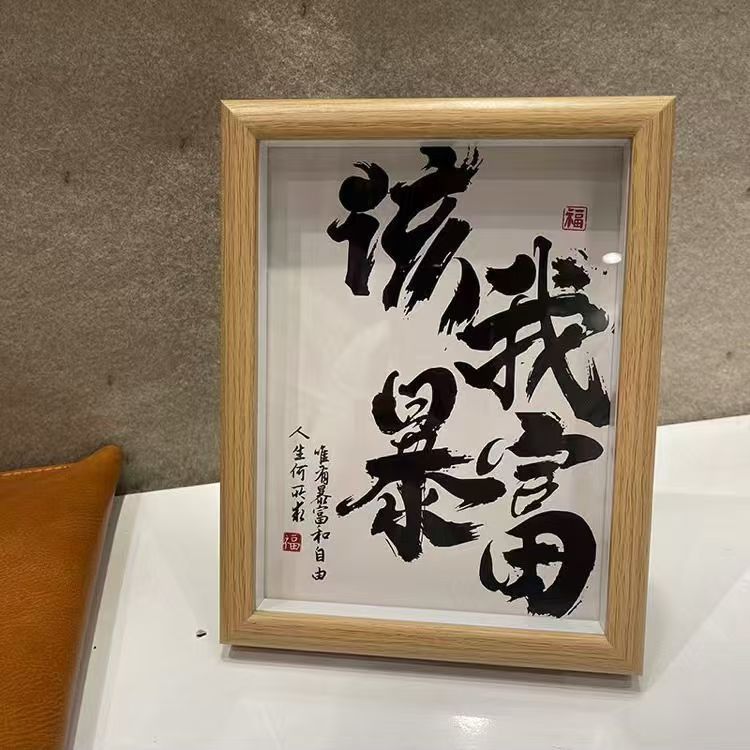 该我
暴富
人生何所求
唯有暴富和自由
福
福